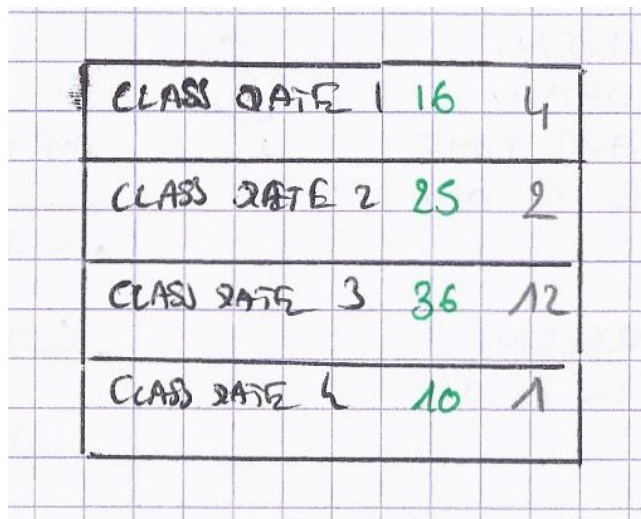 CLASS RATE 1 16 4
CLASS RATE 2 25 2
CLASS RATE 3 36 12
CLASS RATE 4 10 1